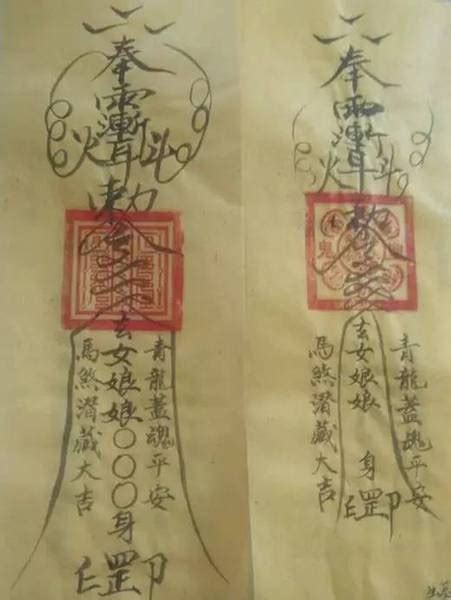 奉
火 斗
勅令
玄女娘娘〇〇〇身
罡
青龍蓋魂平安
馬煞潛藏大吉
奉
火 斗
勅令
玄女娘娘 身
罡
青龍蓋魂平安
馬煞潛藏大吉